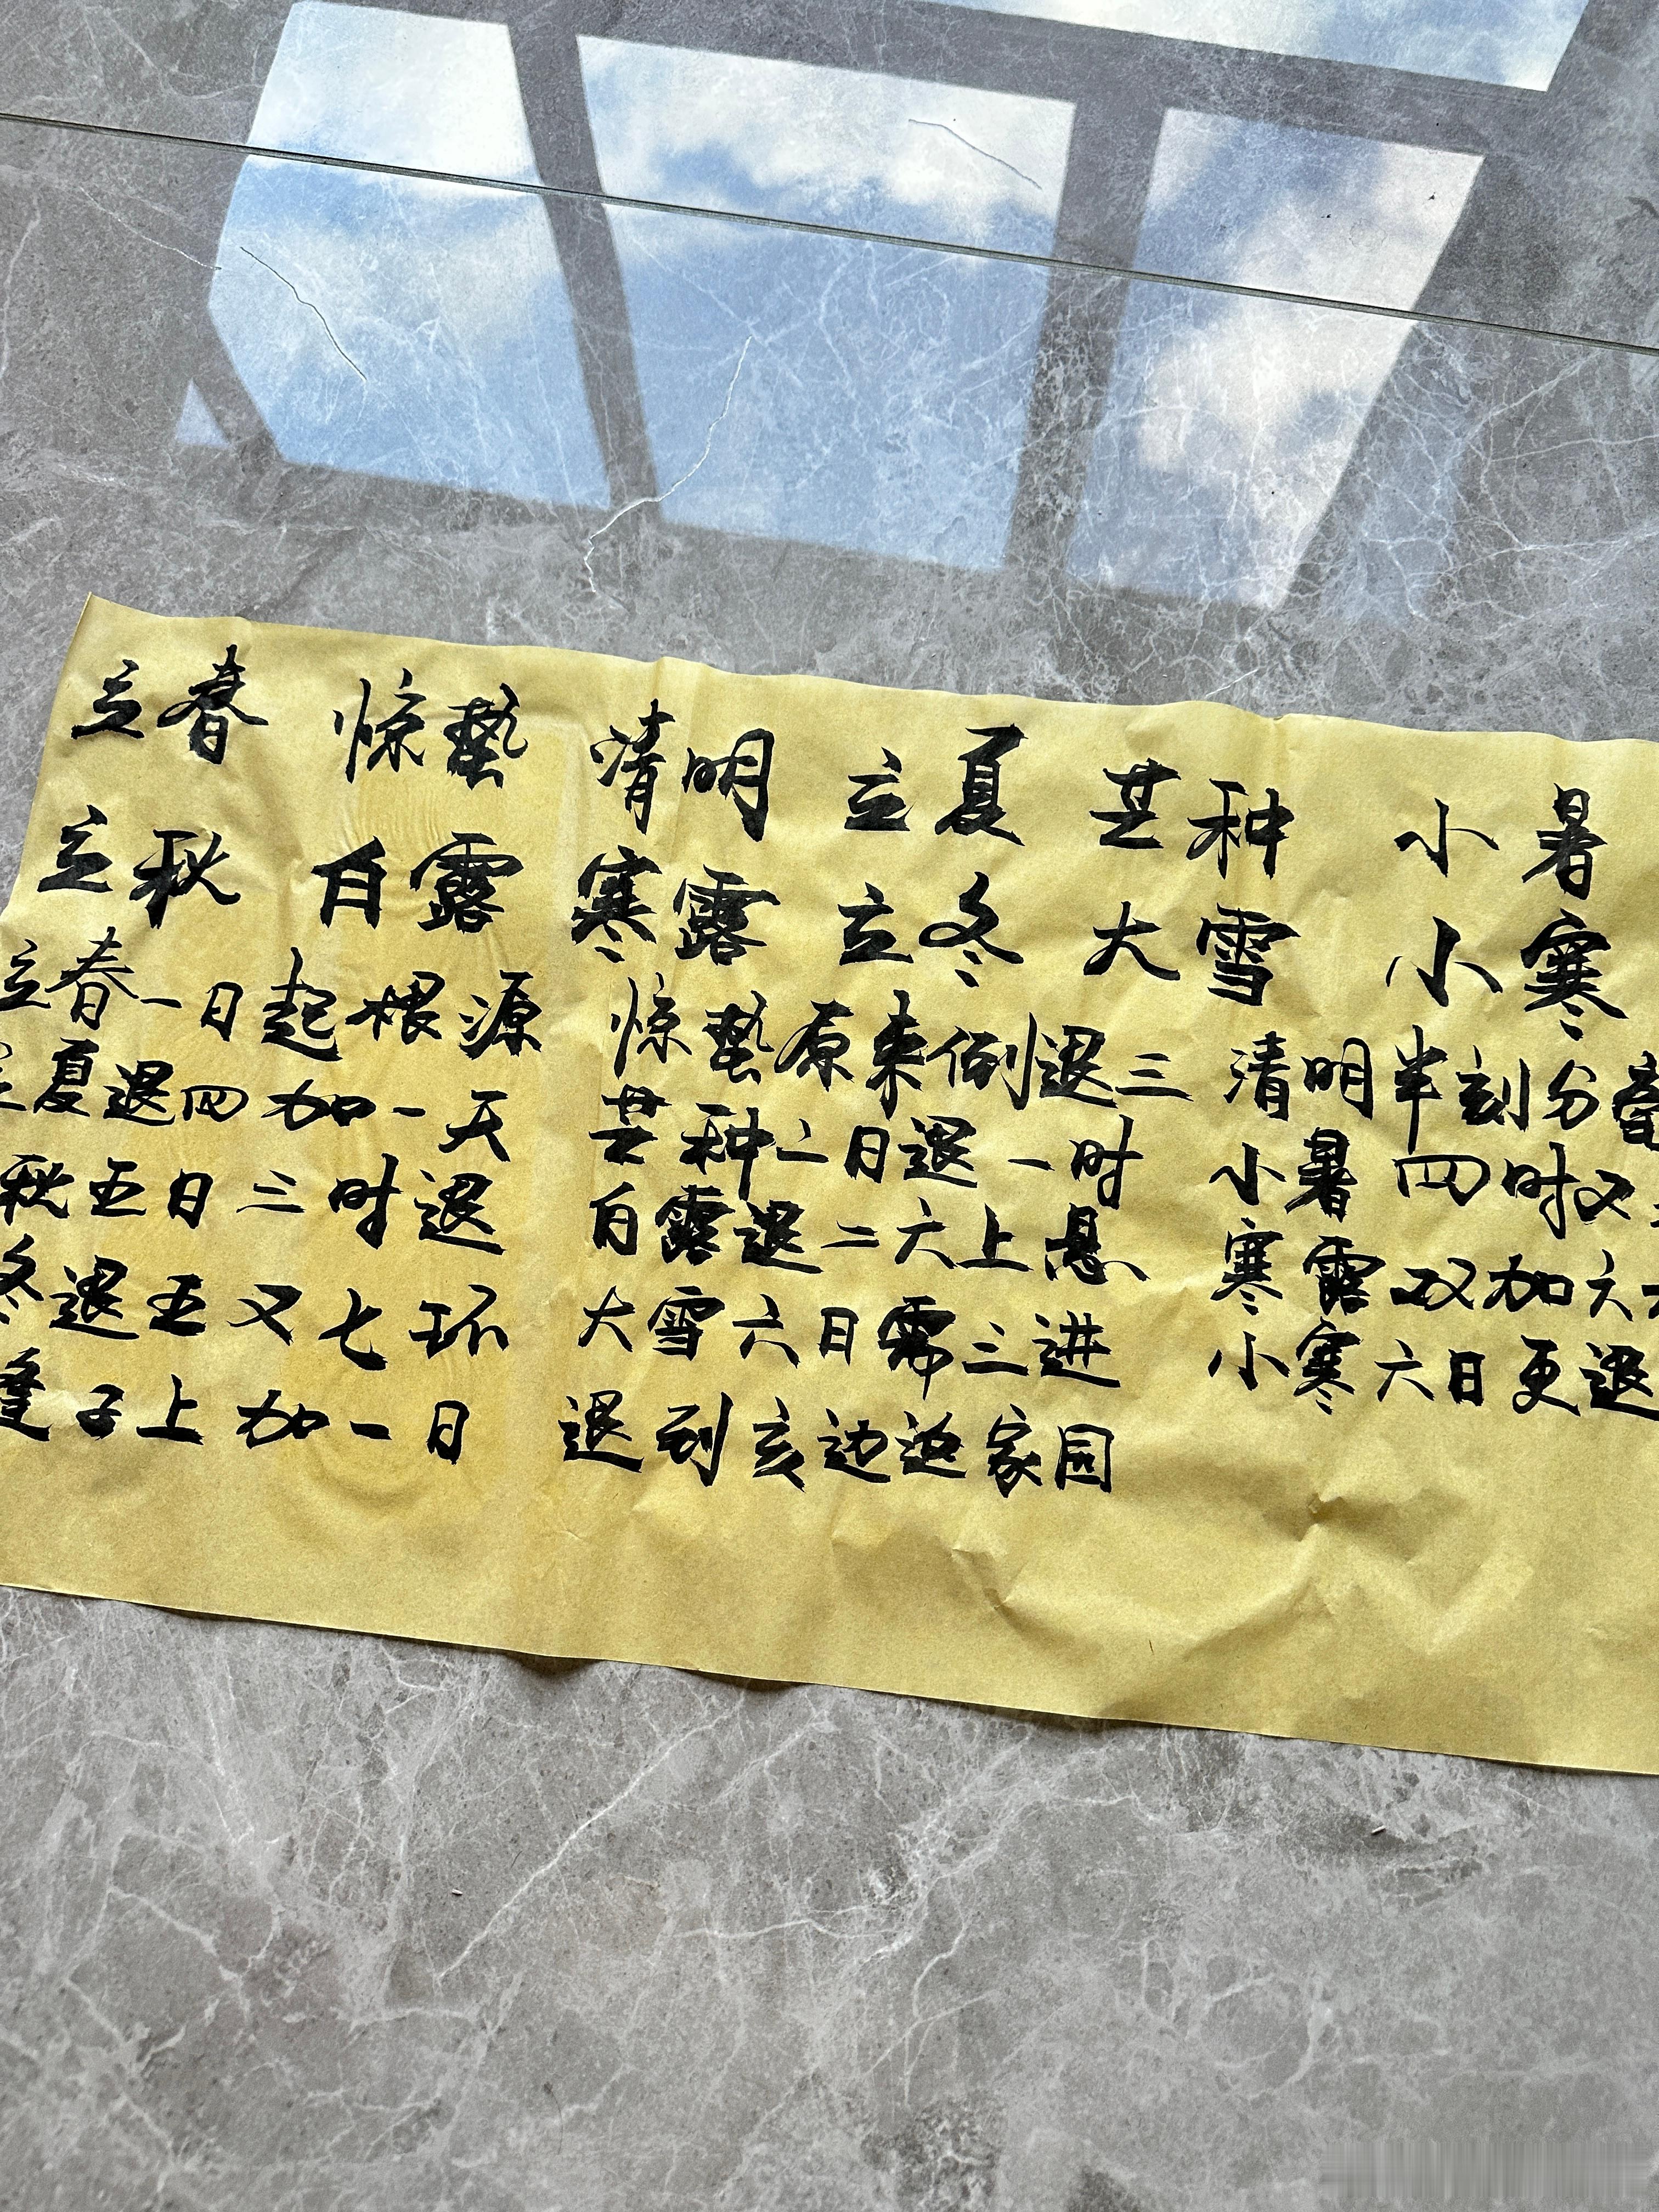 立春 惊蛰 清明 立夏 芒种 小暑
立秋 白露 寒露 立冬 大雪 小寒
立春一日起根源 惊蛰原来倒退三 清明半刻分毫
夏退四加一天 芒种二日退一时 小暑四时又
秋五日三时退 白露退二六上悬 寒露双加六
冬退五又七环 大雪六日零三进 小寒六日更退
逢子上加一日 退到亥边边家园